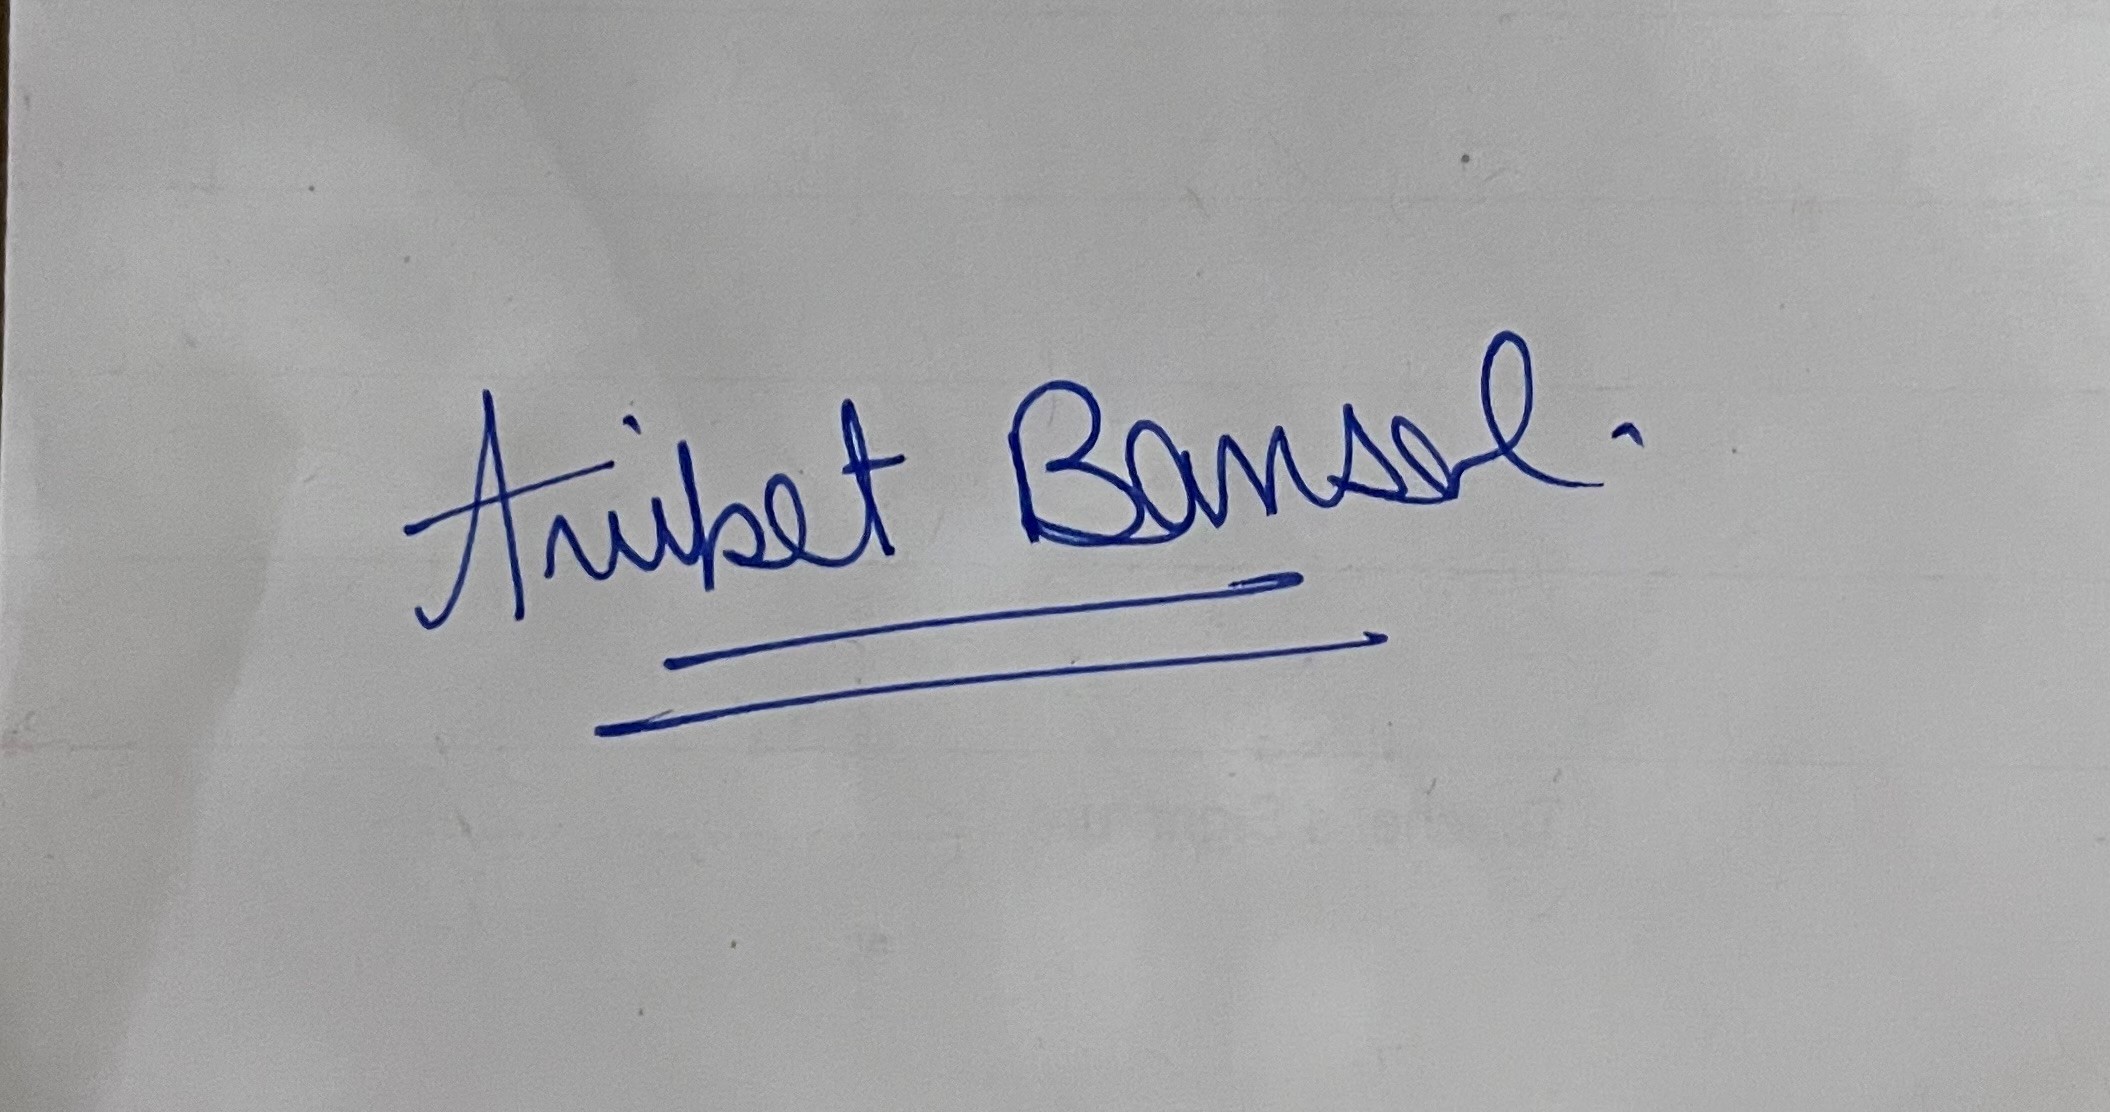 Aniket Bansal.